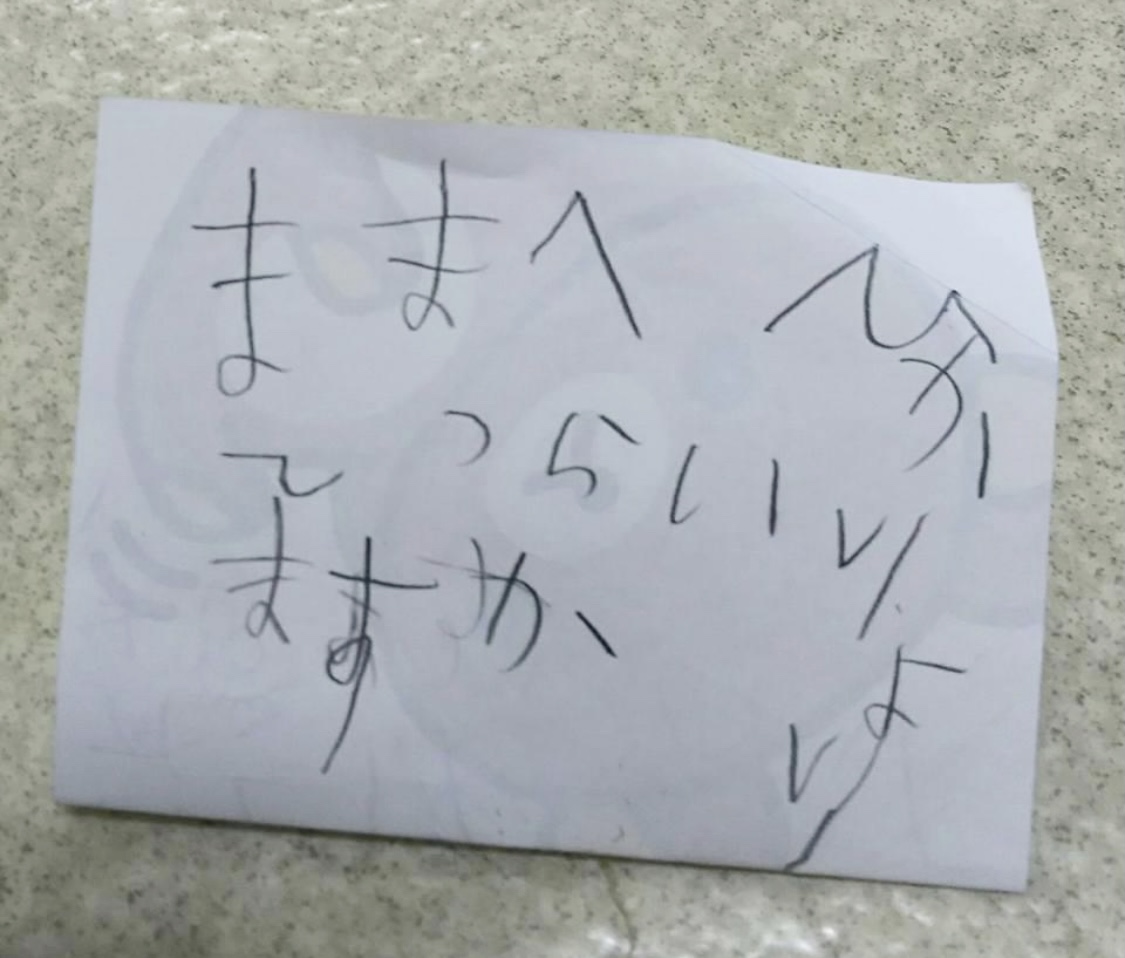 ままへ
ひかりより
いらって
ますか